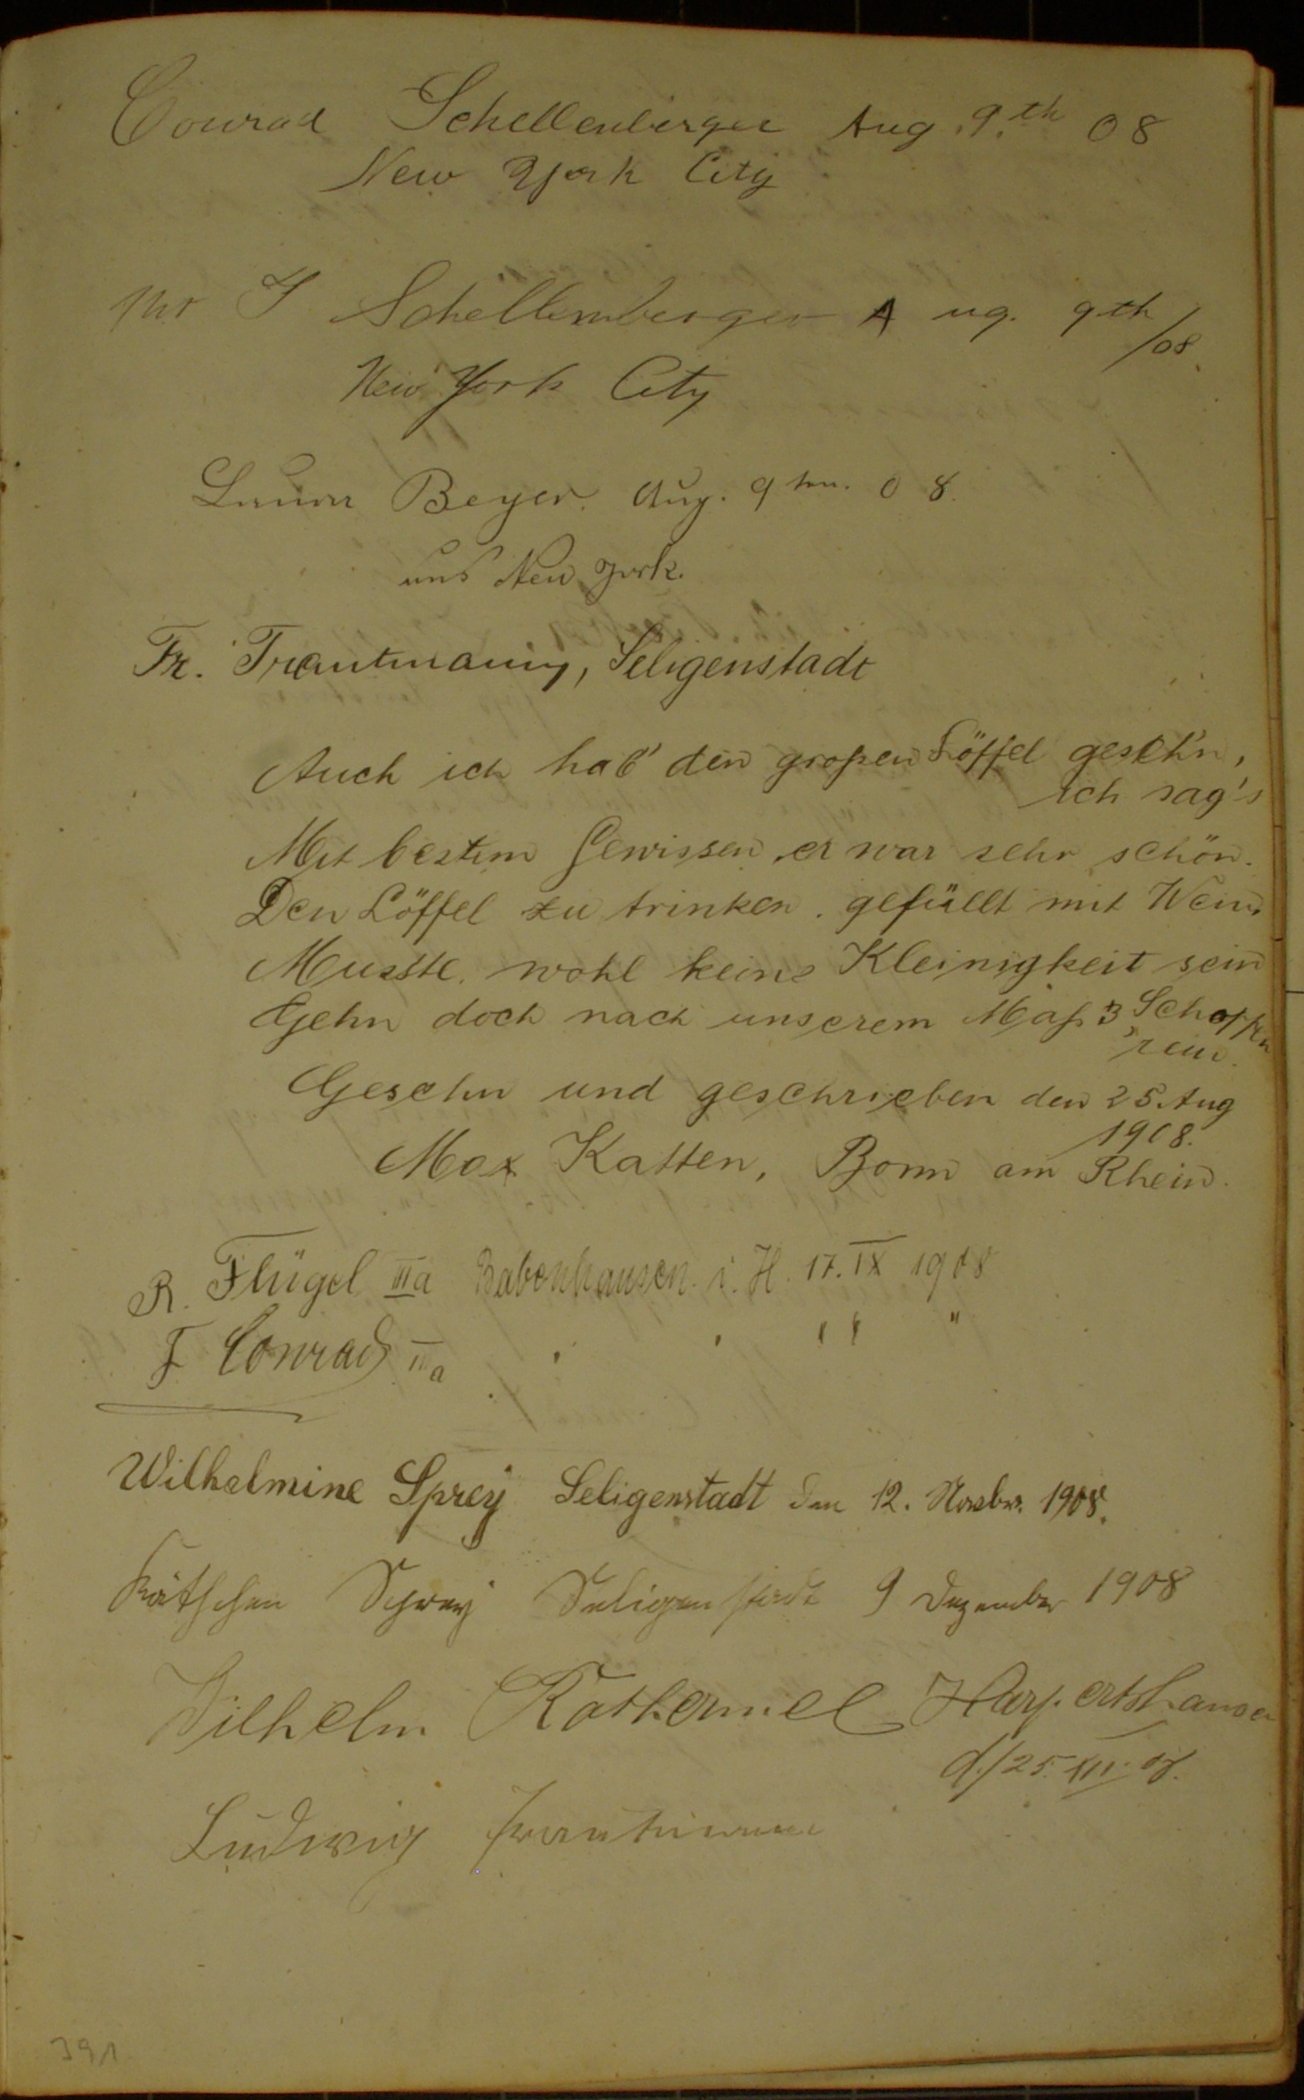 Conrad Schellenberger Aug. 9.th 08
New York City
Mr J Schellenberger Aug. 9th
/08.
New York City
Laura Beyer. Aug. 9ten. 08.
aus New York.
Fr. Trautmann, Seligenstadt
Auch ich hab' den großen Löffel geseh'n,
ich sag's
Mit bestem Gewissen, er war sehr schön.
Den Löffel zu trinken, gefüllt mit Wein,
Musste wohl keine Kleinigkeit sein
Gehn doch nach unserem Maß 3 Schoppen
'rein.
Gesehn und geschrieben den 25. Aug
1908.
Max Katten, Bonn am Rhein.
R. Flügel IIIa Babenhausen i. H. 17. IX 1908
F Conrad IIa " " " " "
Wilhelmine Sprey Seligenstadt den 12. Novbr. 1908.
Käthchen Sprey Seligenstadt 9 Dezember 1908
Wilhelm Rothermel Harpertshausen
d./25. XII. 08.
Ludwig Trautmann
391